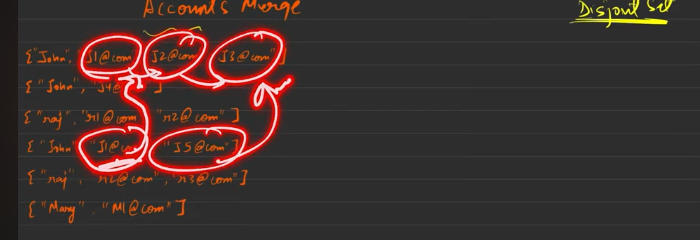 Accounts Merge
Disjoint Set
{"John", "J1@com", "J2@com", "J3@com"]
{"John", "J4@ ]
{"raj", "r1@com", "r2@com"]
{"John", "J1@com", "J5@com"]
{"raj", "r2@com", "r3@com"]
{"Mary", "M1@com"]